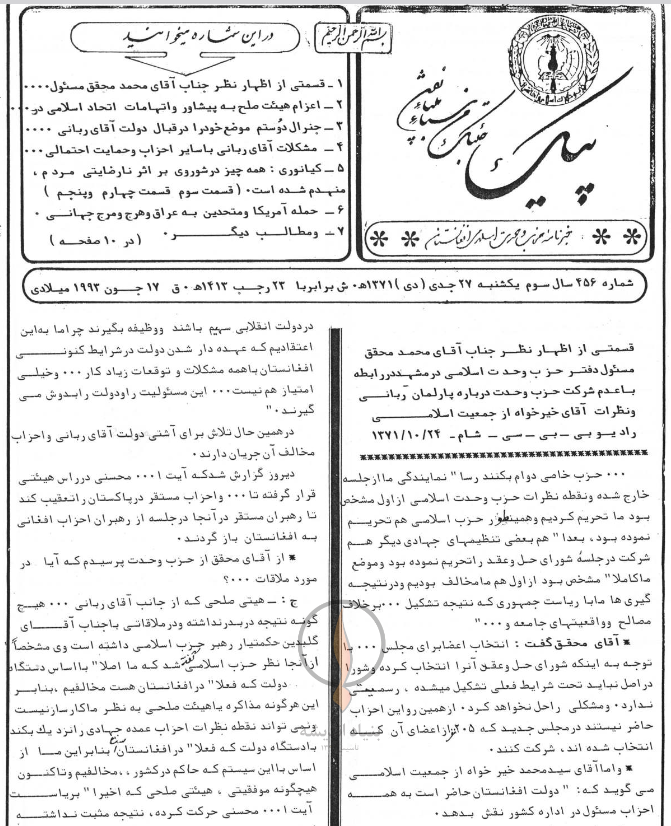 بسم الله الرحمن الرحیم
در این شماره میخوانید
۱ ـ قسمتی از اظهار نظر جناب آقای محمد محقق مسئول....
۲ ــ اعزام هیئت صلح به پیشاور واتهامات اتحاد اسلامی در...
۳ ــ جنرال دوستم موضع خود را در قبال دولت آقای ربانی ....
۴ ــ مشکلات آقای ربانی باسایر احزاب وحمایت احتمالی...
۵ ــ کیانوری : همه چیز در شوروی بر اثر نارضایتی مردم ،
منهدم شده است. ( قسمت سوم قسمت چهارم وپنجم )
۶ ــ حمله آمریکا ومتحدین به عراق وهرج ومرج جهانی .
۷ ــ ومطالب دیگر . ( در ۱۰ صفحه )
پیک
خبرنامه حزب وحدت اسلامی افغانستان
شماره ۴۵۶ سال سوم یکشنبه ۲۷ جدی (دی) ۱۳۷۱ه.ش برابر با ۲۳ رجب ۱۴۱۳ه.ق ۱۷ جون ۱۹۹۳ میلادی
قسمتی از اظهار نظر جناب آقای محمد محقق
مسئول دفتر حزب وحدت اسلامی در مشهد در رابطه
باعدم شرکت حزب وحدت درباره پارلمان ربانی
ونظرات آقای خیرخواه از جمعیت اسلامی
رادیو بی ـ بی ـ سی ـ شام ـ ۱۳۷۱/۱۰/۲۴
... حزب خاصی دوام بکنند رسا" نمایندگی ما از جلسه
خارج شده ونقطه نظرات حزب وحدت اسلامی از اول مشخص
بود ما تحریم کردیم وهمینطور حزب اسلامی هم تحریم
نموده بود ، بعدا" هم بعضی تنظیمهای جهادی دیگر هم
شرکت در جلسهٔ شورای حل وعقد را تحریم نموده بود وموضع
ما کاملا" مشخص بود از اول هم ما مخالف بودیم ودر نتیجه
گیری ها ما با ریاست جمهوری که نتیجه تشکیل ... برخلاف
مصالح وواقعیتهای جامعه و..."
* آقای محقق گفت : انتخاب اعضا برای مجلس ... با
توجه به اینکه شورای حل وعقد آنرا انتخاب کرده وشورا
در اصل نباید تحت شرایط فعلی تشکیل میشده ، رسمیتی
ندارد. ومشکلی را حل نخواهد کرد. از همین رو این احزاب
حاضر نیستند در مجلس جدید که ۲۰۵ نفر از اعضای آن
انتخاب شده اند ، شرکت کنند.
* واما آقای سید محمد خیر خواه از جمعیت اسلامی
می گوید که : " دولت افغانستان حاضر است به همه
احزاب مسئول در اداره کشور نقش بدهد.
در دولت انقلابی سهیم باشند ووظیفه بگیرند چرا ما به این
اعتقادیم که عهده دار شدن دولت در شرایط کنونی
افغانستان باهمه مشکلات و توقعات زیاد کار ... وخیلی
امتیاز هم نیست... این مسئولیت را ودولت را بدوش می
گیرند."
درهمین حال تلاش برای آشتی دولت آقای ربانی واحزاب
مخالف آن جریان دارند.
دیروز گزارش شد که آیت ا... محسنی در راس هیئتی
قرار گرفته تا ... واحزاب مستقر در پاکستان را تعقیب کند
تا رهبران مستقر در آنجا در جلسه از رهبران احزاب افغانی
به افغانستان باز گردند.
* از آقای محقق از حزب وحدت پرسیدم که آیا در
مورد ملاقات ...؟
ج : ــ هیئتی صلحی که از جانب آقای ربانی ... هیچ
گونه نتیجه در بدر نداشته ودر ملاقاتی با جناب آقای
گلبدین حکمتیار رهبر حزب اسلامی داشته است وی مشخصاً
از آنجا نظر حزب اسلامی گفته شد که ما اصلا" با اساس دستگاه
دولت که فعلا" در افغانستان هست مخالفیم .بنابر
این هرگونه مذاکره یا هیئت صلحی به نظر ما کارساز نیست
ونمی تواند نقطه نظرات احزاب عمده جهادی را نزدیک بکند
با دستگاه دولت که فعلا" در افغانستان بنابر این ما از
اساس با این سیستم که حاکم در کشور ، ، مخالفیم وتاکنون
هیچگونه موفقیتی ، هیئتی صلحی که اخیرا" بریاست
آیت ا... محسنی حرکت کرده ، نتیجه مثبت نداشته